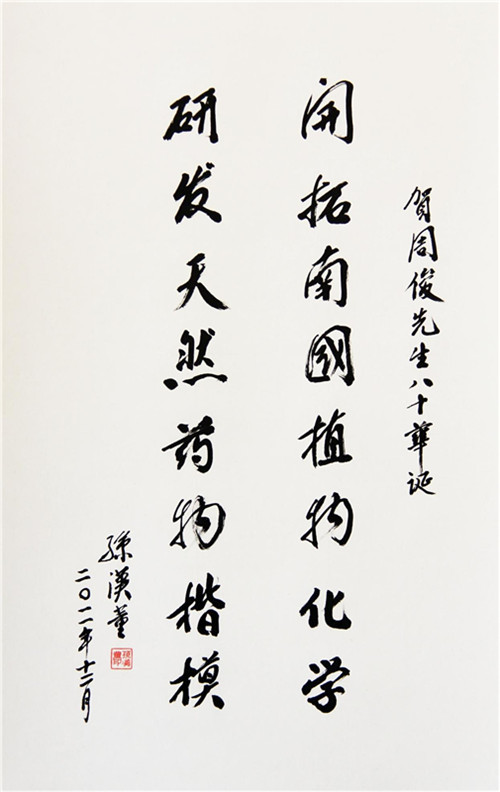 贺周俊先生八十華诞
开拓南國植物化学
研发天然药物楷模
孫漢董
二〇一一年十二月